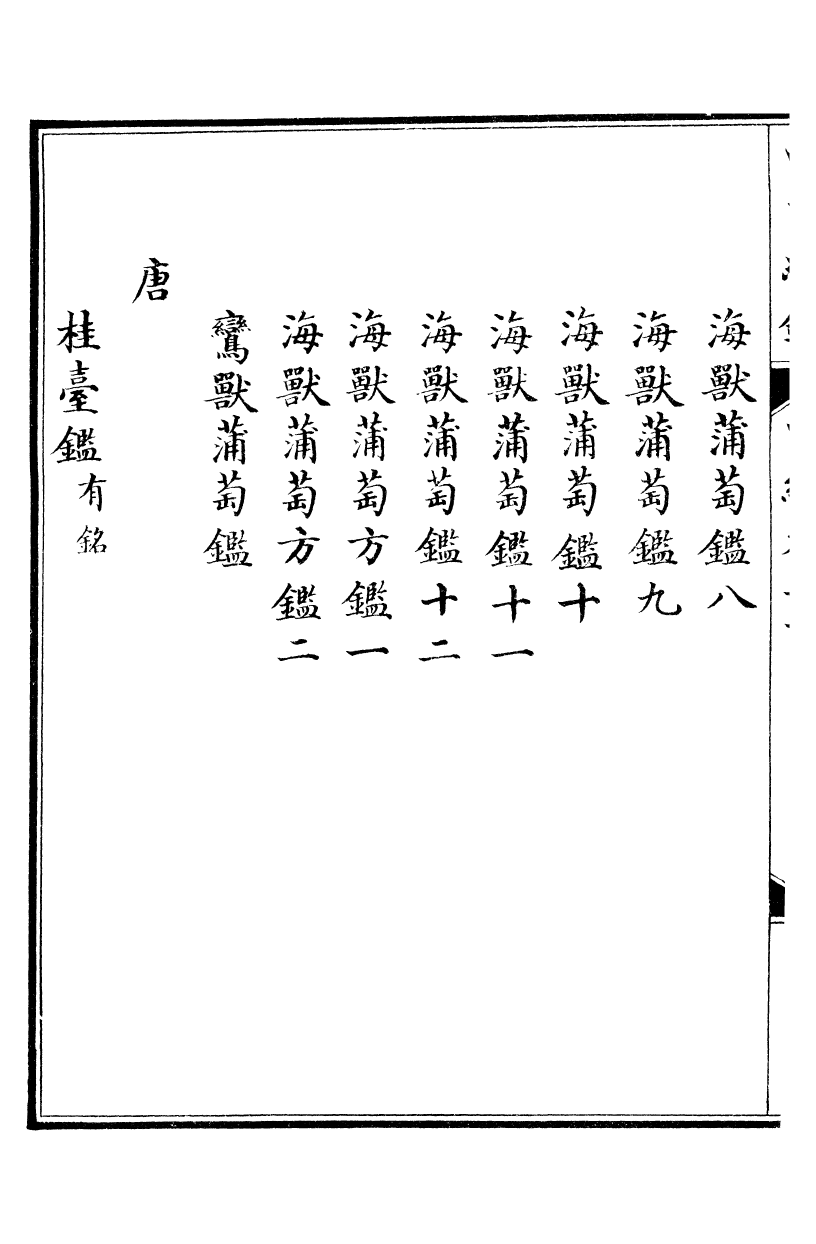 海獸蒲萄鑑八
海獸蒲萄鑑九
海獸蒲萄鑑十
海獸蒲萄鑑十一
海獸蒲萄鑑十二
海獸蒲萄方鑑一
海獸蒲萄方鑑二
鸞獸蒲萄鑑
唐
桂臺鑑有銘